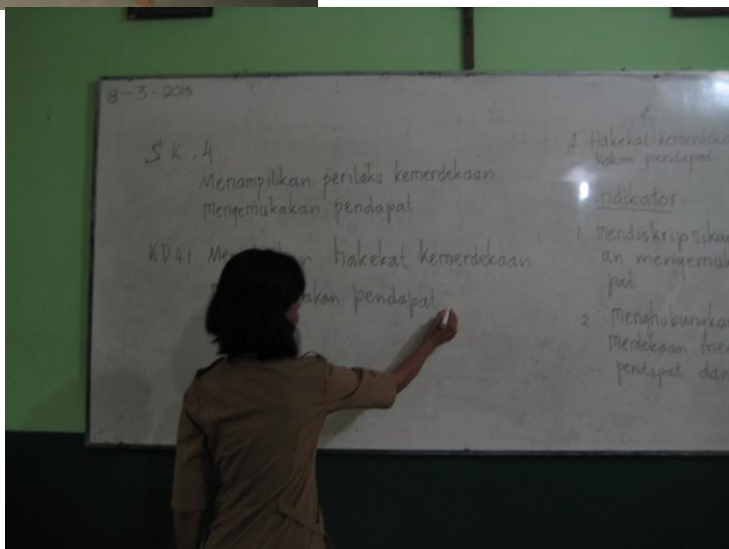 8-3-2013
SK.4
Menampilkan perilaku kemerdekaan
mengemukakan pendapat
KD 4.1. hakekat kemerdekaan
akan pendapat
A Hakekat kemerdeka
kakan pendapat
indikator
1. mendiskripsikan
an mengemuk
pat
2 menghubungka
merdekaan men
pendapat dan